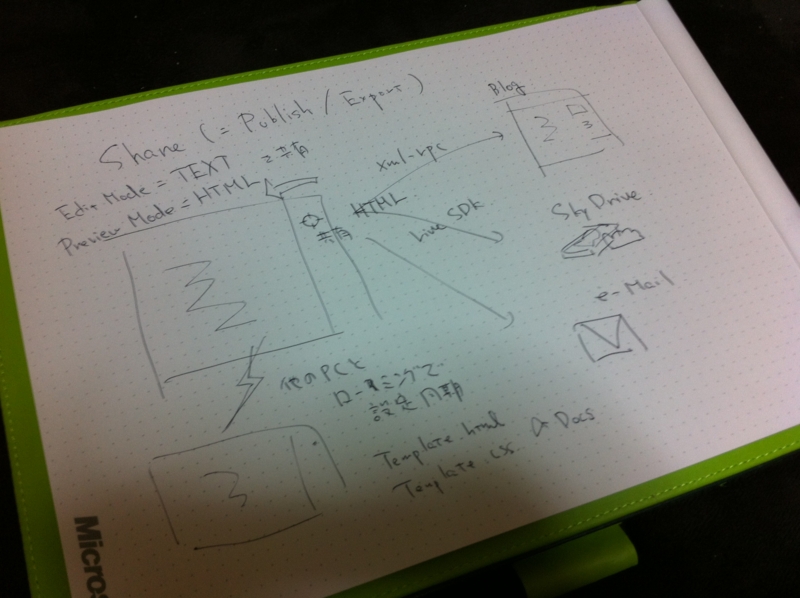 Share (= Publish / Export)
Edit Mode = TEXT を共有
Preview Mode = HTML
共有
HTML
xml-rpc
Blog
Live SDK
SkyDrive
e-Mail
他のPCと
ローミングで
設定同期
Template html
Template css & Docs
Micros